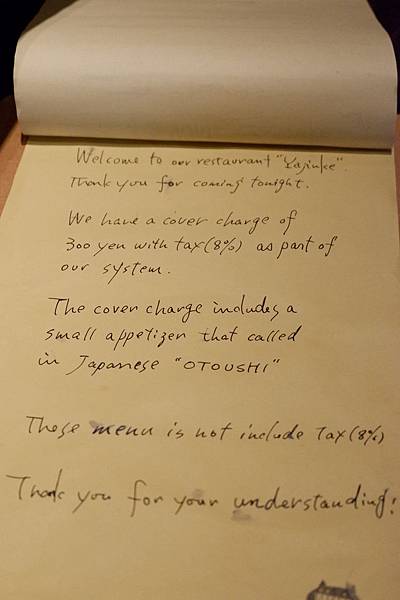 Welcome to our restaurant "Yajinke".
Thank you for coming tonight.
We have a cover charge of
300 yen with tax (8%) as part of
our system.
The cover charge includes a
small appetizer that called
in Japanese "OTOUSHI"
These menu is not include Tax (8%)
Thank you for your understanding!